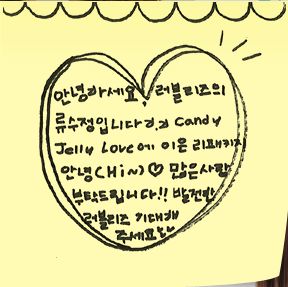 안녕하세요, 러블리즈의
류수정입니다ㅎㅎ Candy
Jelly Love에 이은 리패키지
안녕(Hi~) ♡ 많은사랑
부탁드립니다!! 발전한
러블리즈 기대해
주세요